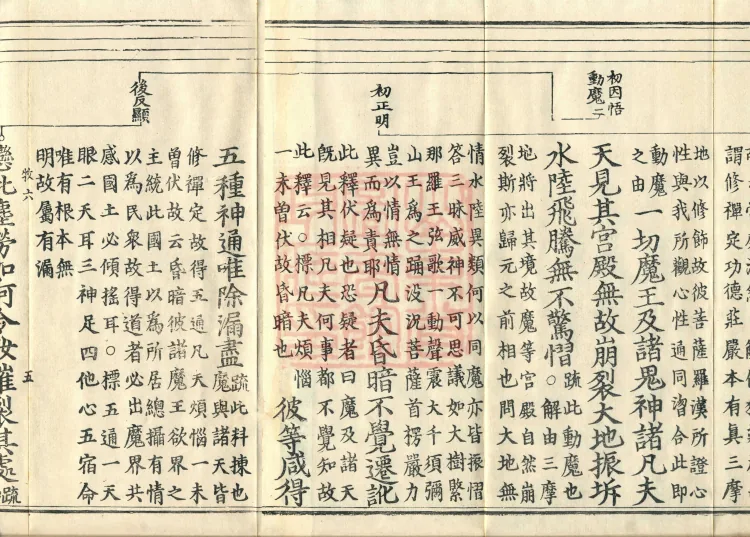 初因悟
動魔二
謂修禪定功德莊嚴本有真三摩
地以修飾故彼菩薩羅漢所證心
性與我所觀心性通同㳷合此即
動魔
之由
一切魔王及諸鬼神諸凡夫
天見其宮殿無故崩裂大地振坼
水陸飛騰無不驚慴
疏此動魔也
○解由三摩
地將出其境故魔等宮殿自然崩
裂斯亦歸元之前相也問大地無
初正明
情水陸異類何以同魔亦皆振慴
答三昧威神不可思議如大樹緊
那羅王弦歌一動聲震大千須彌
山王為之踊没況菩薩首楞嚴力
豈以情無情
異而為責耶
凡夫昏暗不覺遷訛
此釋伏疑也恐疑者曰魔及諸天
旣見其相凡夫何事都不覺知故
此釋云○標凡夫煩惱
一未曾伏故昏暗也
彼等咸得
後反顯
五種神通唯除漏盡
疏此料揀也
魔與諸天皆
修禪定故得五通凡夫煩惱一未
曾伏故云昏暗彼諸魔王欲界之
主統此國土以為所居總攝有情
以為民衆故得道者必出魔界共
感國土必傾搖耳○標五通一天
眼二天耳三神足四他心五宿命
唯有根本無
明故屬有漏
牧六
五
戀此塵勞如何令汝摧裂其處
疏